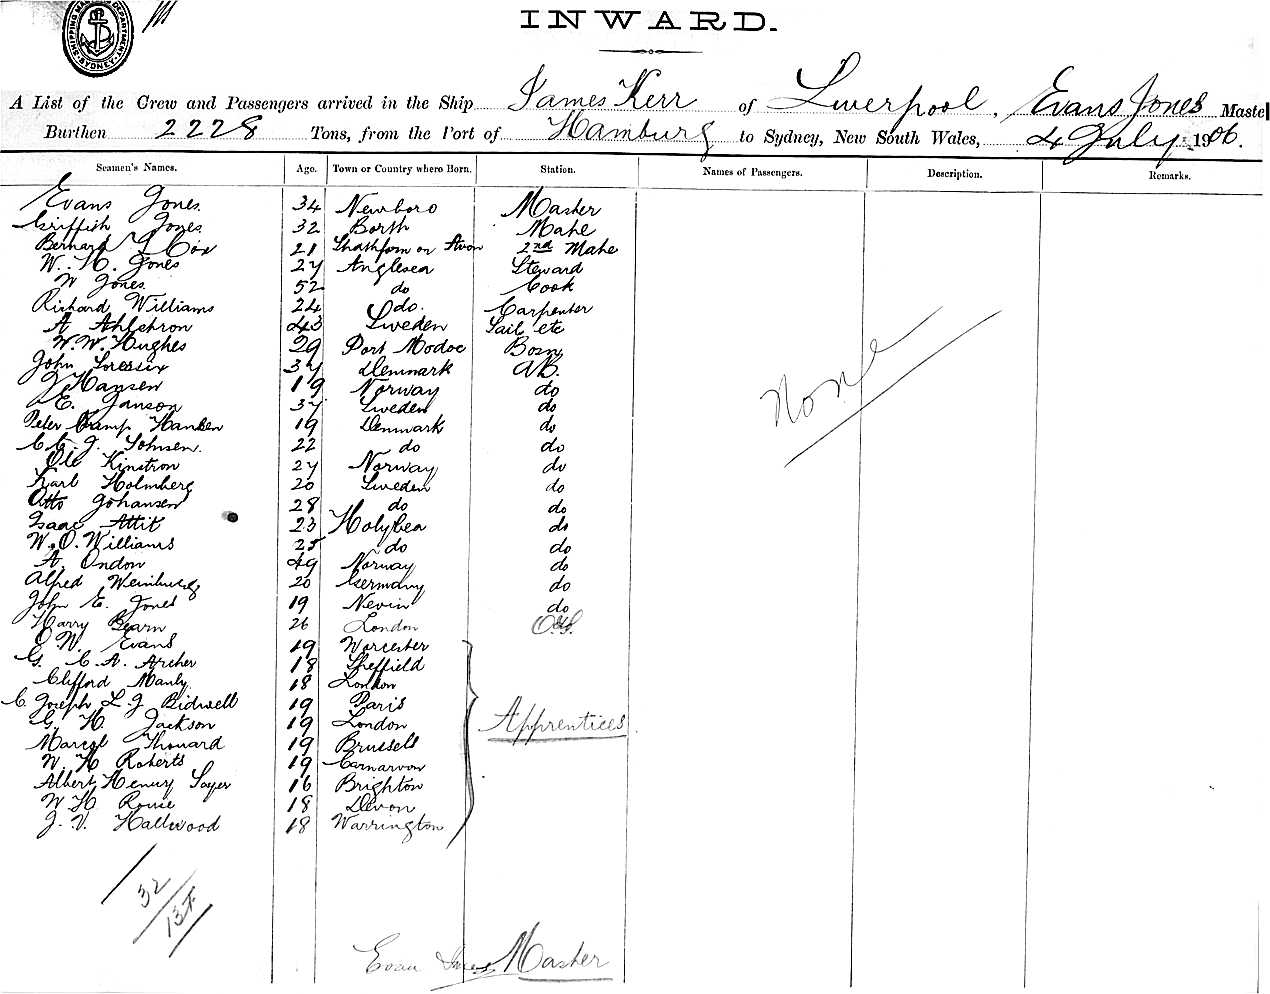 SHIPPING MASTER'S DEPARTMENT SYDNEY
INWARD.
A List of the Crew and Passengers arrived in the Ship James Kerr of Liverpool, Evans Jones Maste
Burthen 2228 Tons, from the Port of Hamburg to Sydney, New South Wales, 4 July 1906.
Seamen's Names. Age. Town or Country where Born. Station. Names of Passengers. Description. Remarks.
Evans Jones 34 Newboro Master
Griffith Jones 32 Borth Mate
Bernard Cox 21 Stratford on Avon 2nd Mate
W. H. Jones 27 Anglesea Steward
W Jones 52 do Cook
Richard Williams 24 do. Carpenter
A Ahlstron 43 Sweden Sail etc
W. W. Hughes 29 Port Madoc Bosn
John 37 Denmark AB.
J Hansen 19 Norway do
E. Janson 37 Sweden do
Peter Kamp Hansen 19 Denmark do
C. C. J. Johnsen. 22 do do
Ole Kinstron 27 Norway do
Karl Holmberg 20 Sweden do
Otto Johansen 28 do do
Isaac Attit 23 Holyhea do
W. O. Williams 25 do do
A. Ondon 49 Norway do
Alfred Weinburg 20 Germany do
John E. Jones 19 Nevin do
Harry Bearn 26 London O.S.
O. W. Evans 19 Worcester
G. C. A. Archer 18 Sheffield
Clifford Manly 18 London
C. Joseph L. J Bidwell 19 Paris
G. H. Jackson 19 London
Apprentices
Marcel Thouard 19 Brussels
W. H Roberts 19 Carnarvon
Albert Henry Sayer 16 Brighton
W H Rouse 18 Devon
J. V. Hallwood 18 Warrington
None
32
Evan Jones Master